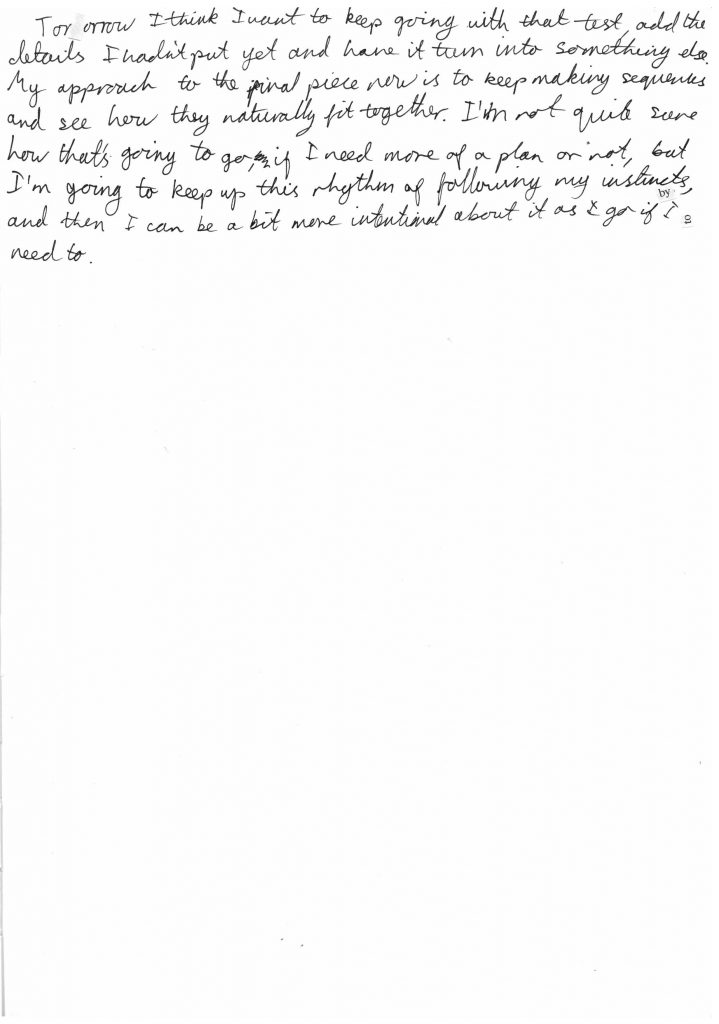 Tomorrow I think I want to keep going with that test, add the
details I hadn't put yet and have it turn into something else.
My approach to the final piece now is to keep making sequences
and see how they naturally fit together. I'm not quite sure
how that's going to go, if I need more of a plan or not, but
I'm going to keep up this rhythm of following my instincts,
by
and then I can be a bit more intentional about it as I go if I
need to.